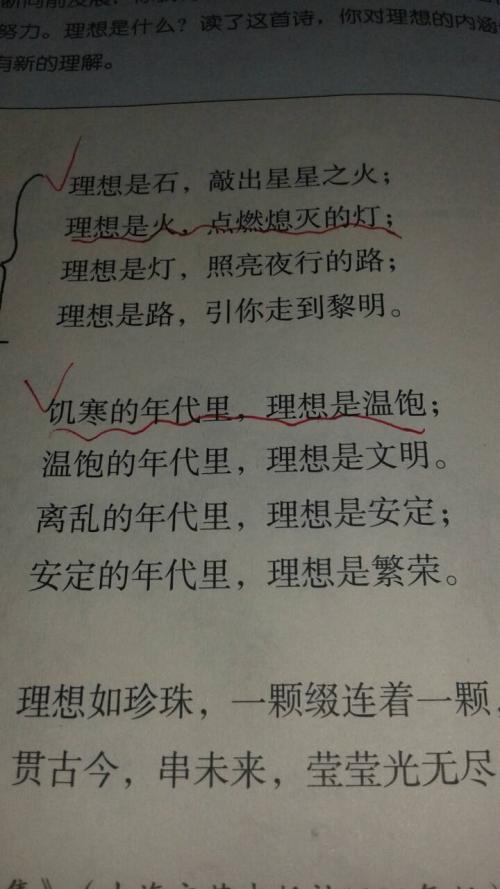 努力。理想是什么？读了这首诗，你对理想的内涵
有新的理解。
理想是石，敲出星星之火；
理想是火，点燃熄灭的灯；
理想是灯，照亮夜行的路；
理想是路，引你走到黎明。
饥寒的年代里，理想是温饱；
温饱的年代里，理想是文明。
离乱的年代里，理想是安定；
安定的年代里，理想是繁荣。
理想如珍珠，一颗缀连着一颗，
贯古今，串未来，莹莹光无尽